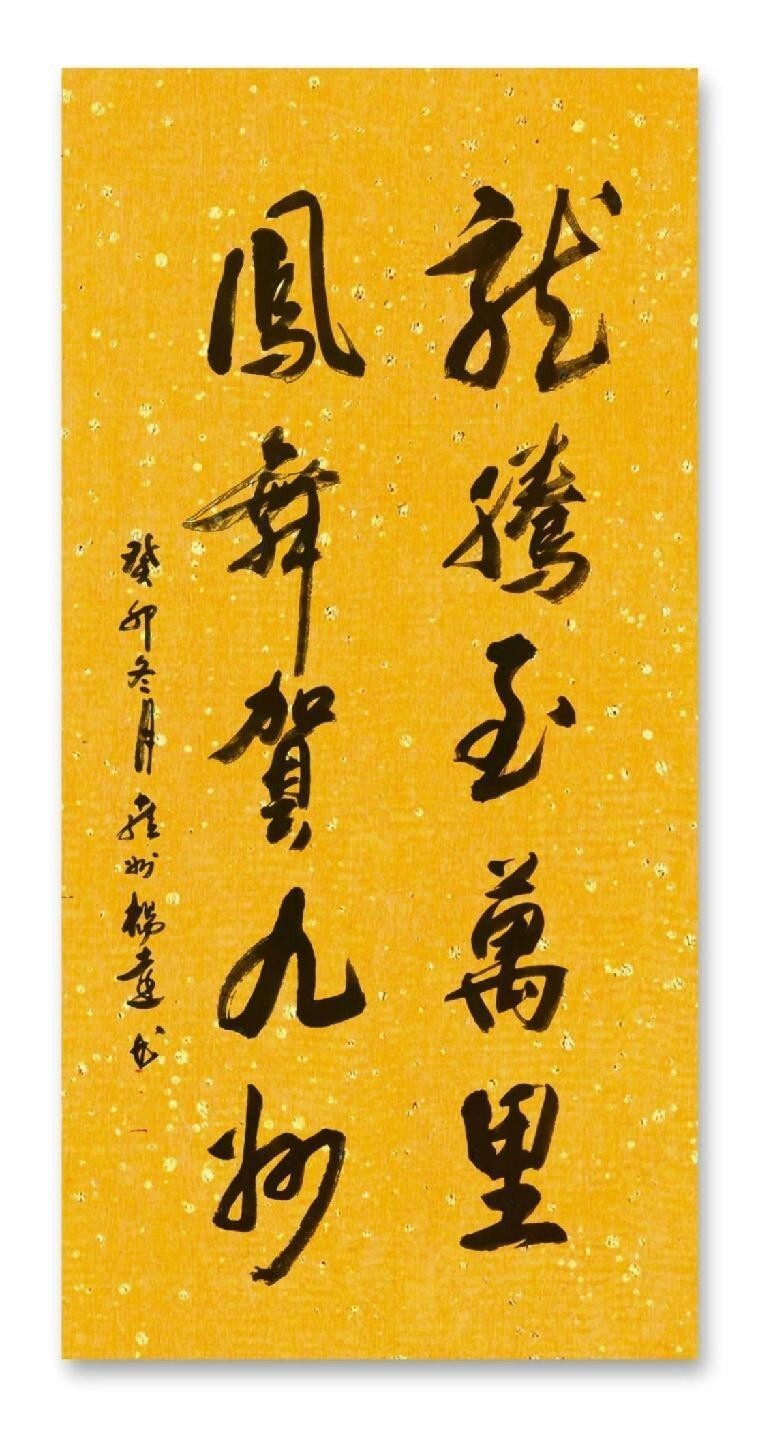 龍騰至萬里
鳳舞賀九州
癸卯冬月雍州楊達书